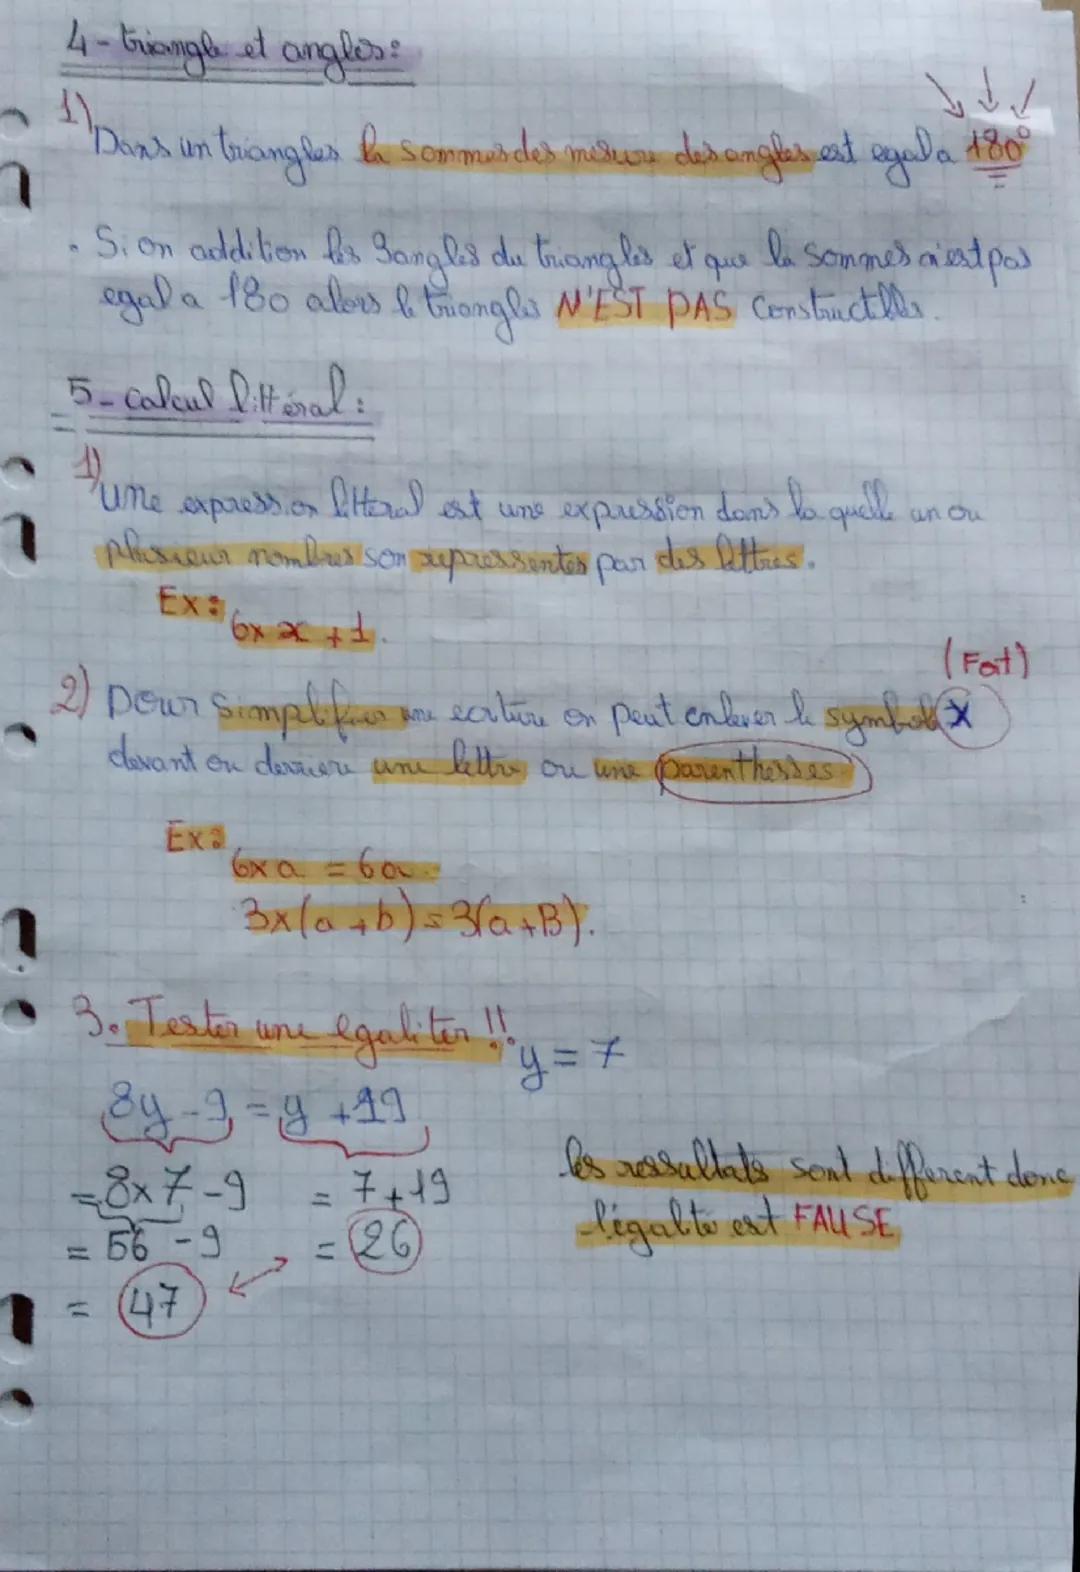 4- triangle et angles:
1) Dans un triangles la sommes des mesure des angles est egal a 180°
• Si on addition les 3 angles du triangles et que la sommes n'est pas
egal a 180 alors le triangles N'EST PAS constructible.
5- calcul littéral:
1) une expression litteral est une expression dans la quelle un ou
plusieur nombres son repressentes par des lettres.
Ex: 6x x + 1.
(Fait)
2) pour simplifier une ecriture on peut enlever le symbole x
devant ou derriere une lettre ou une parenthesses.
Ex:
6x a = 6a
3x(a+b) = 3(a+B).
3. Tester une egaliter !! y = 7
8y - 9 = y + 19
= 8x7-9 = 7+19
= 56 - 9 = 26
= 47
les ressultats sont different donc
l'égalité est FAUSE